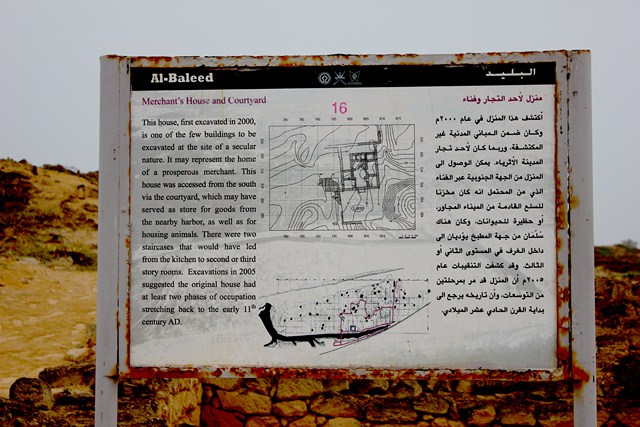 Al-Baleed
البليد
Merchant's House and Courtyard
This house, first excavated in 2000,
is one of the few buildings to be
excavated at the site of a secular
nature. It may represent the home
of a prosperous merchant. This
house was accessed from the south
via the courtyard, which may have
served as store for goods from
the nearby harbor, as well as for
housing animals. There were two
staircases that would have led
from the kitchen to second or third
story rooms. Excavations in 2005
suggested the original house had
at least two phases of occupation
stretching back to the early 11th
century AD.
16
منزل لأحد التجار وفناء
أكتشف هذا المنزل في عام ٢٠٠٠م
وكان ضمن المباني المدنية غير
المكتشفة، وربما كان لأحد تجار
المدينة الأثرياء. يمكن الوصول الى
المنزل من الجهة الجنوبية عبر الفناء
الذي من المحتمل انه كان مخزنا
للسلع القادمة من الميناء المجاور،
أو حظيرة للحيوانات، وكان هناك
سلمان من جهة المطبخ يؤديان الى
داخل الغرف في المستوى الثاني أو
الثالث. وقد كشفت التنقيبات عام
٢٠٠٥م أن المنزل قد مر بمرحلتين
من التوسعات، وأن تاريخه يرجع الى
بداية القرن الحادي عشر الميلادي.